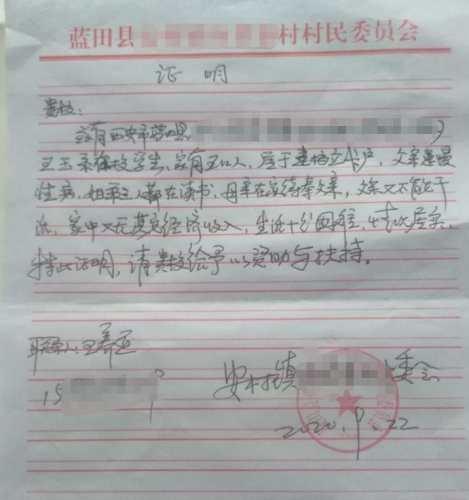 蓝田县 村村民委员会
证明
贵校:
兹有西安市蓝田县
王玉 系你校学生,家有五口人,属于建档立卡户,父亲患慢
性病,姐弟三人都在读书,母亲在家待奉父亲,父亲又不能干
活,家中又无其它经济收入,生活十分困难,情况属实,
特此证明,请贵校给予以资助与扶持。
联系人:王养
15 9
安村镇 委会
2020.9.22